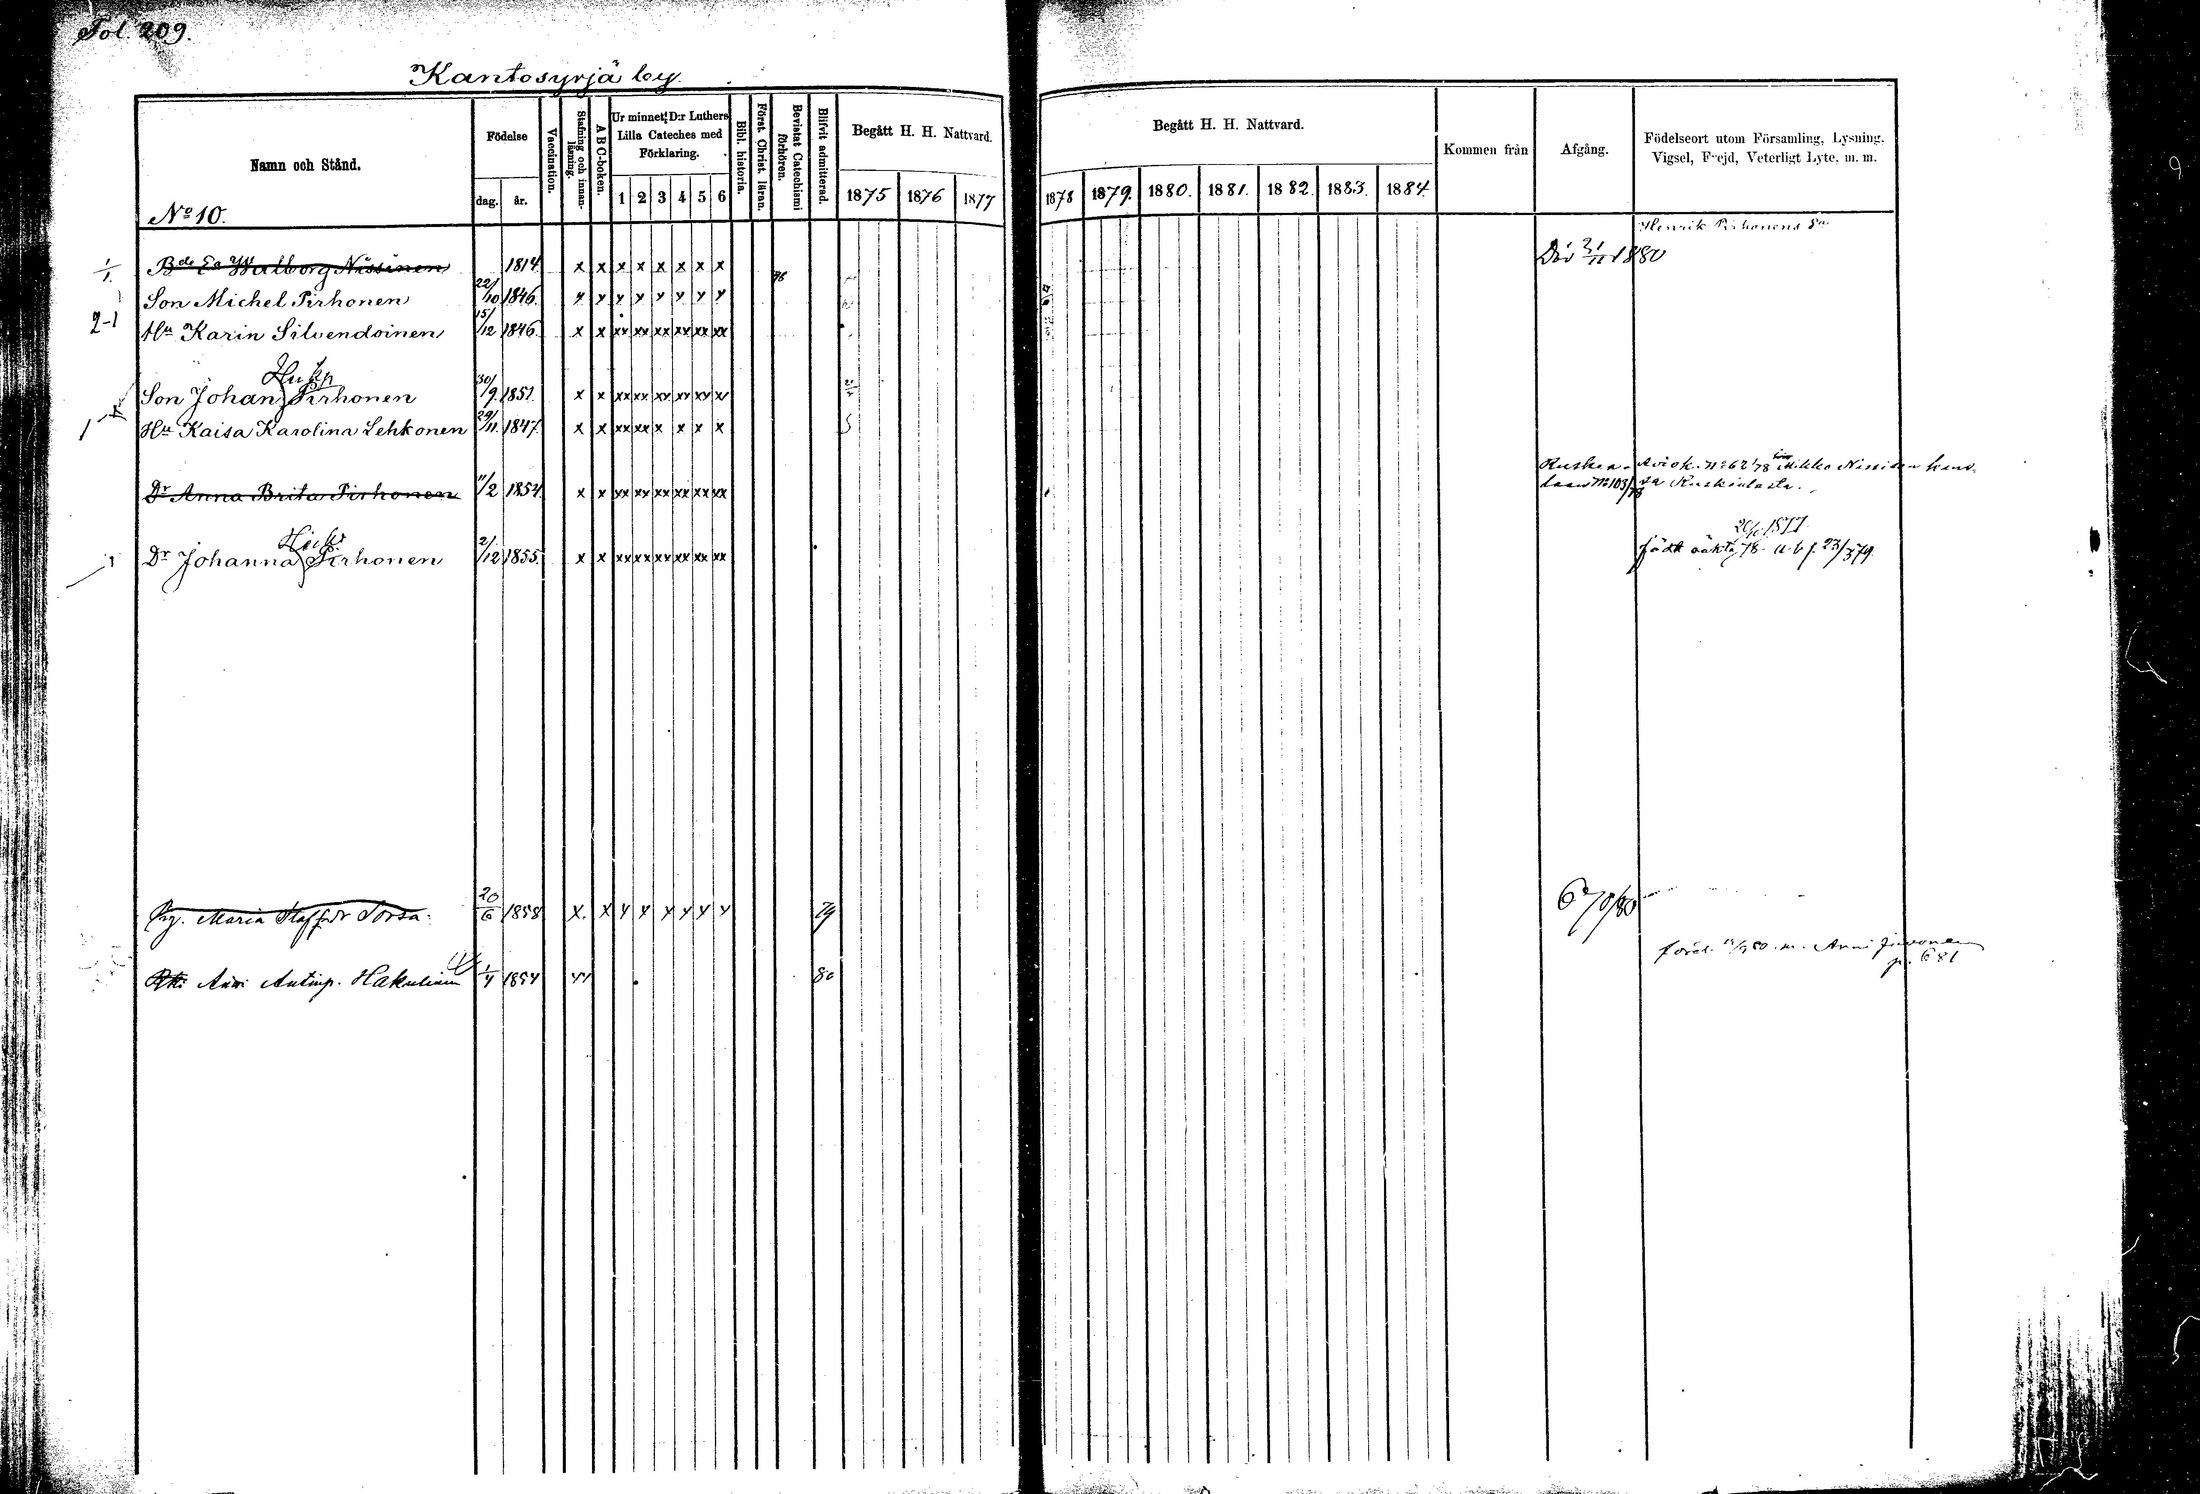 Fol. 209.
Kantosyrjä by.
Namn och Stånd.
Födelse
dag. år.
Vaccination.
Stafning och innanläsning.
A B C-boken.
Ur minnet: D:r Luthers
Lilla Cateches med
Förklaring.
1 2 3 4 5 6
Bibl. historia.
Först. Christ. läran.
Bevistat Catechismi förhören.
Blifvit admitterad.
Begått H. H. Nattvard.
1875 1876 1877
Begått H. H. Nattvard.
1878 1879. 1880. 1881. 1882. 1883. 1884.
Kommen från
Afgång.
Födelseort utom Församling, Lysning,
Vigsel, Frejd, Veterligt Lyte, m. m.
No 10.
Henrik Pirhonens
Bde Ea Walborg Nissinen 1814 x x x x x x x x 76 Död 21/11 1880
Son Michel Pirhonen 22/10 1846. y y y y y y y y
2-1 Hu Karin Silvendoinen 15/12 1846. x x xx xx xx xx xx xx
Hukn
Son Johan Pirhonen 30/9 1851. x x xx xx xx xx xx xx
1 Hu Kaisa Karolina Lehkonen 29/11. 1847. x x xx xx x x x x
Dr Anna Brita Pirhonen 11/2 1854 x x xx xx xx xx xx xx
Ruskea- Aviok. No 62/78 Mikko Nissisen kans-
laan No 103/78 sa Ruskialasta.
Dr Johanna Pirhonen 2/12 1855. x x xx xx xx xx xx xx
1877.
född oäkta 78 23/3 79.
Maria Staff.dr Sorsa. 20/6 1858 x. x y y y y y y 79
Antinp. Hakulinen 1/4 1854 80
80 m. Anni
p. 681